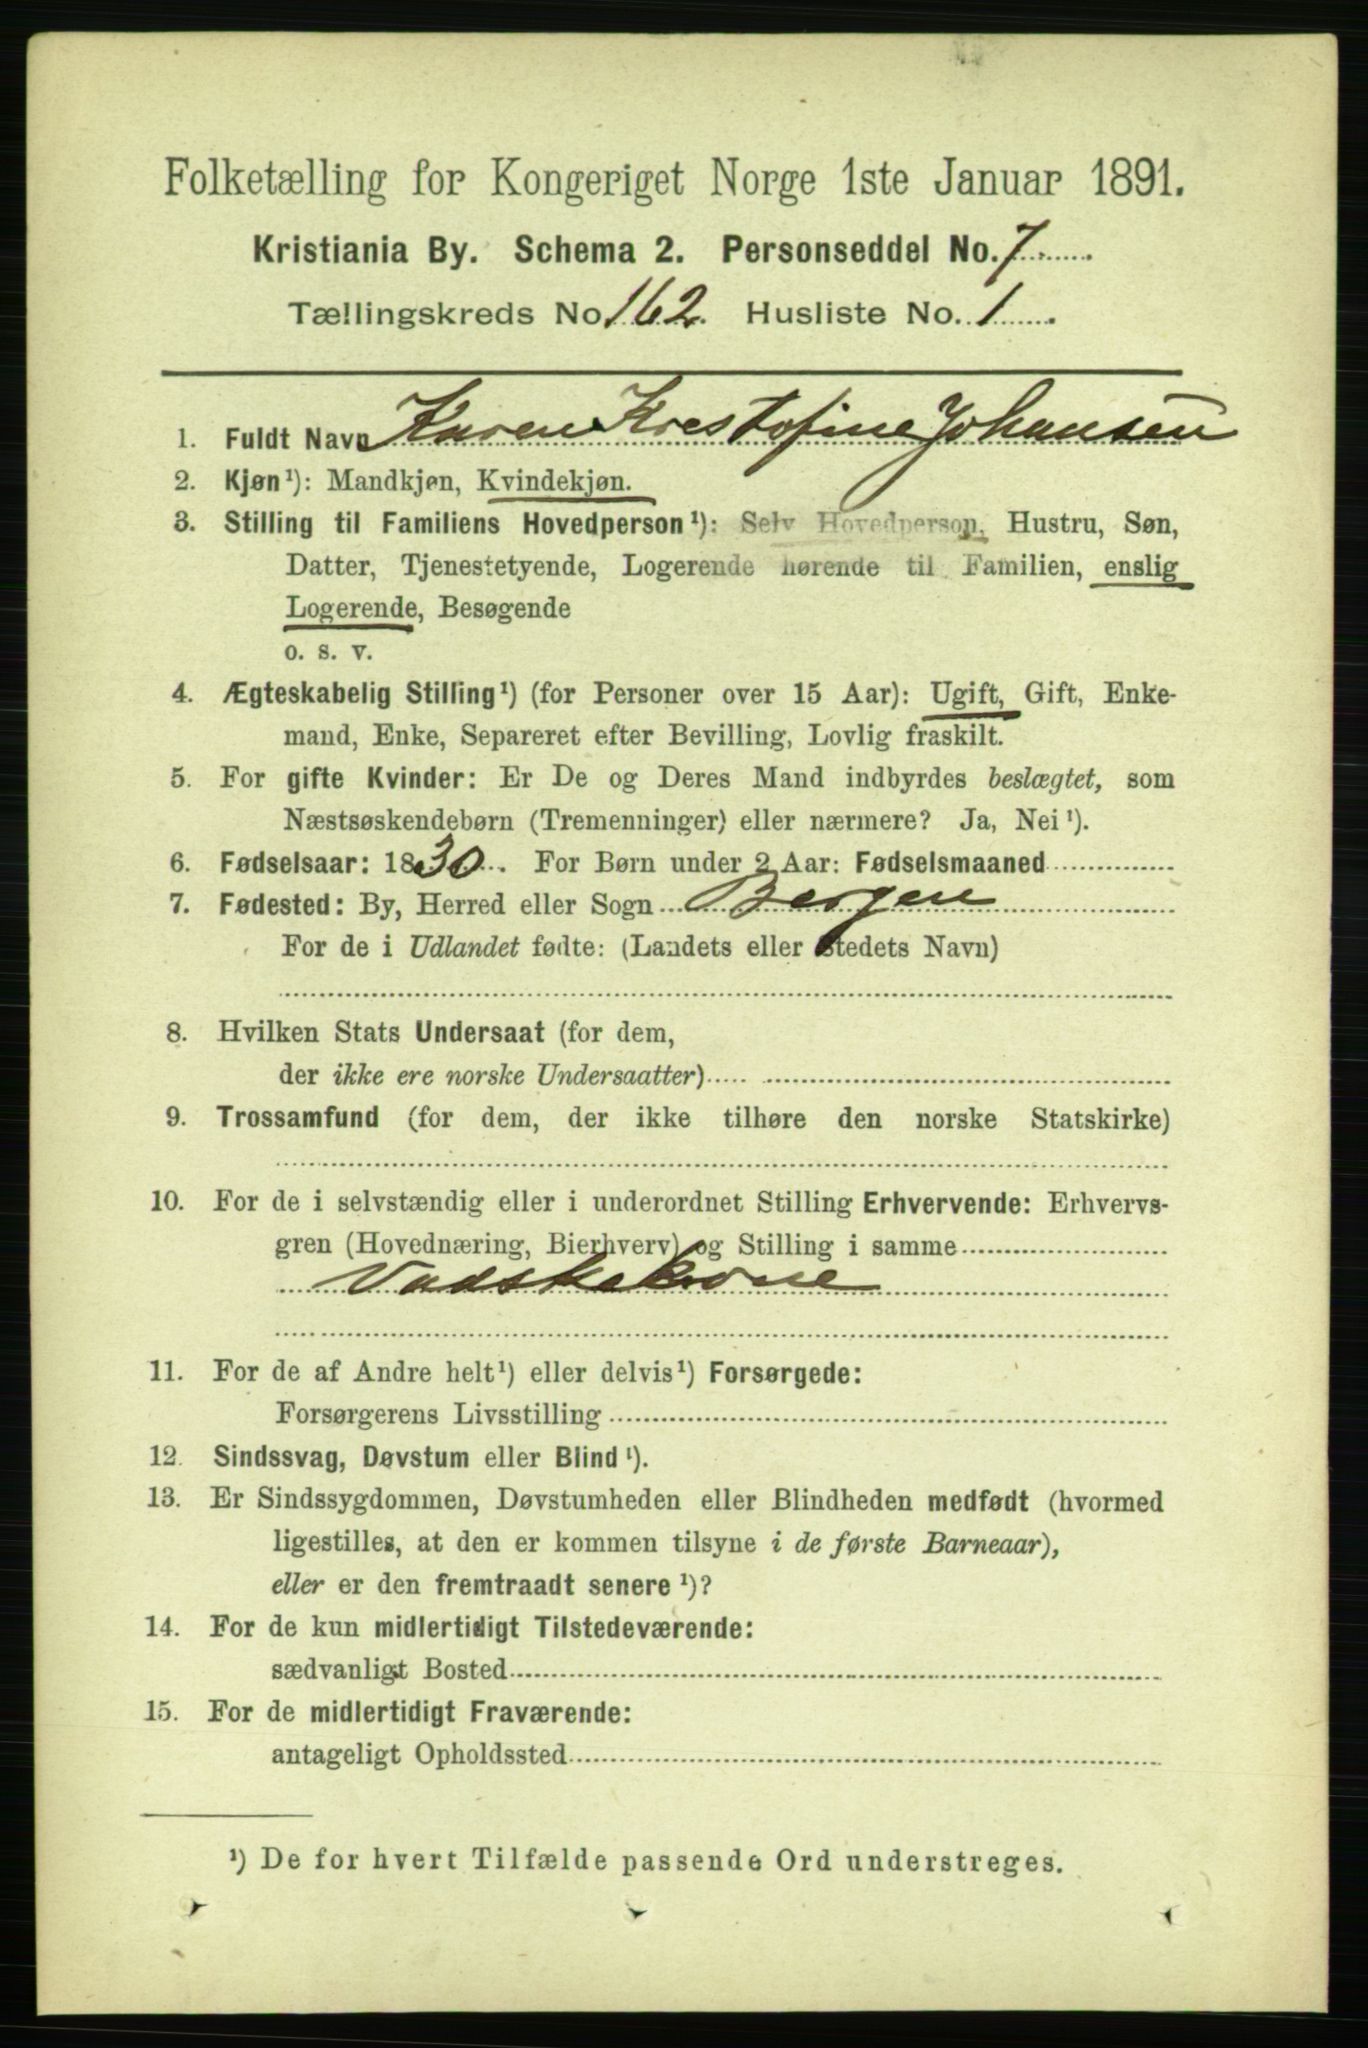 Folketælling for Kongeriget Norge 1ste Januar 1891.
Kristiania By. Schema 2. Personseddel No. 7
Tællingskreds No. 162. Husliste No. 1
1. Fuldt Navn Karen Krestofine Johansen
2. Kjøn¹): Mandkjøn, Kvindekjøn.
3. Stilling til Familiens Hovedperson¹): Selv Hovedperson, Hustru, Søn,
Datter, Tjenestetyende, Logerende hørende til Familien, enslig
Logerende, Besøgende
o. s. v.
4. Ægteskabelig Stilling¹) (for Personer over 15 Aar): Ugift, Gift, Enke-
mand, Enke, Separeret efter Bevilling, Lovlig fraskilt.
5. For gifte Kvinder: Er De og Deres Mand indbyrdes beslægtet, som
Næstsøskendebørn (Tremenninger) eller nærmere? Ja, Nei¹).
6. Fødselsaar: 1830. For Børn under 2 Aar: Fødselsmaaned
7. Fødested: By, Herred eller Sogn Bergen
For de i Udlandet fødte: (Landets eller Stedets Navn)
8. Hvilken Stats Undersaat (for dem,
der ikke ere norske Undersaatter)
9. Trossamfund (for dem, der ikke tilhøre den norske Statskirke)
10. For de i selvstændig eller i underordnet Stilling Erhvervende: Erhvervs-
gren (Hovednæring, Bierhverv) og Stilling i samme
Vadskekone
11. For de af Andre helt¹) eller delvis¹) Forsørgede:
Forsørgerens Livsstilling
12. Sindssvag, Døvstum eller Blind¹).
13. Er Sindssygdommen, Døvstumheden eller Blindheden medfødt (hvormed
ligestilles, at den er kommen tilsyne i de første Barneaar),
eller er den fremtraadt senere¹)?
14. For de kun midlertidigt Tilstedeværende:
sædvanligt Bosted
15. For de midlertidigt Fraværende:
antageligt Opholdssted
¹) De for hvert Tilfælde passende Ord understreges.